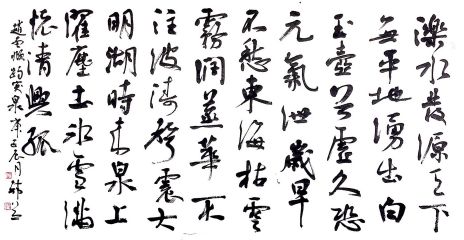 濼水發源天下
無平地湧出白
玉壺谷虛久恐
元氣泄歲旱
不愁東海枯雲
霧潤蒸華不
注波濤聲震大
明湖時來泉上
濯塵土冰雪滿
懷清興孤
趙孟頫趵突泉